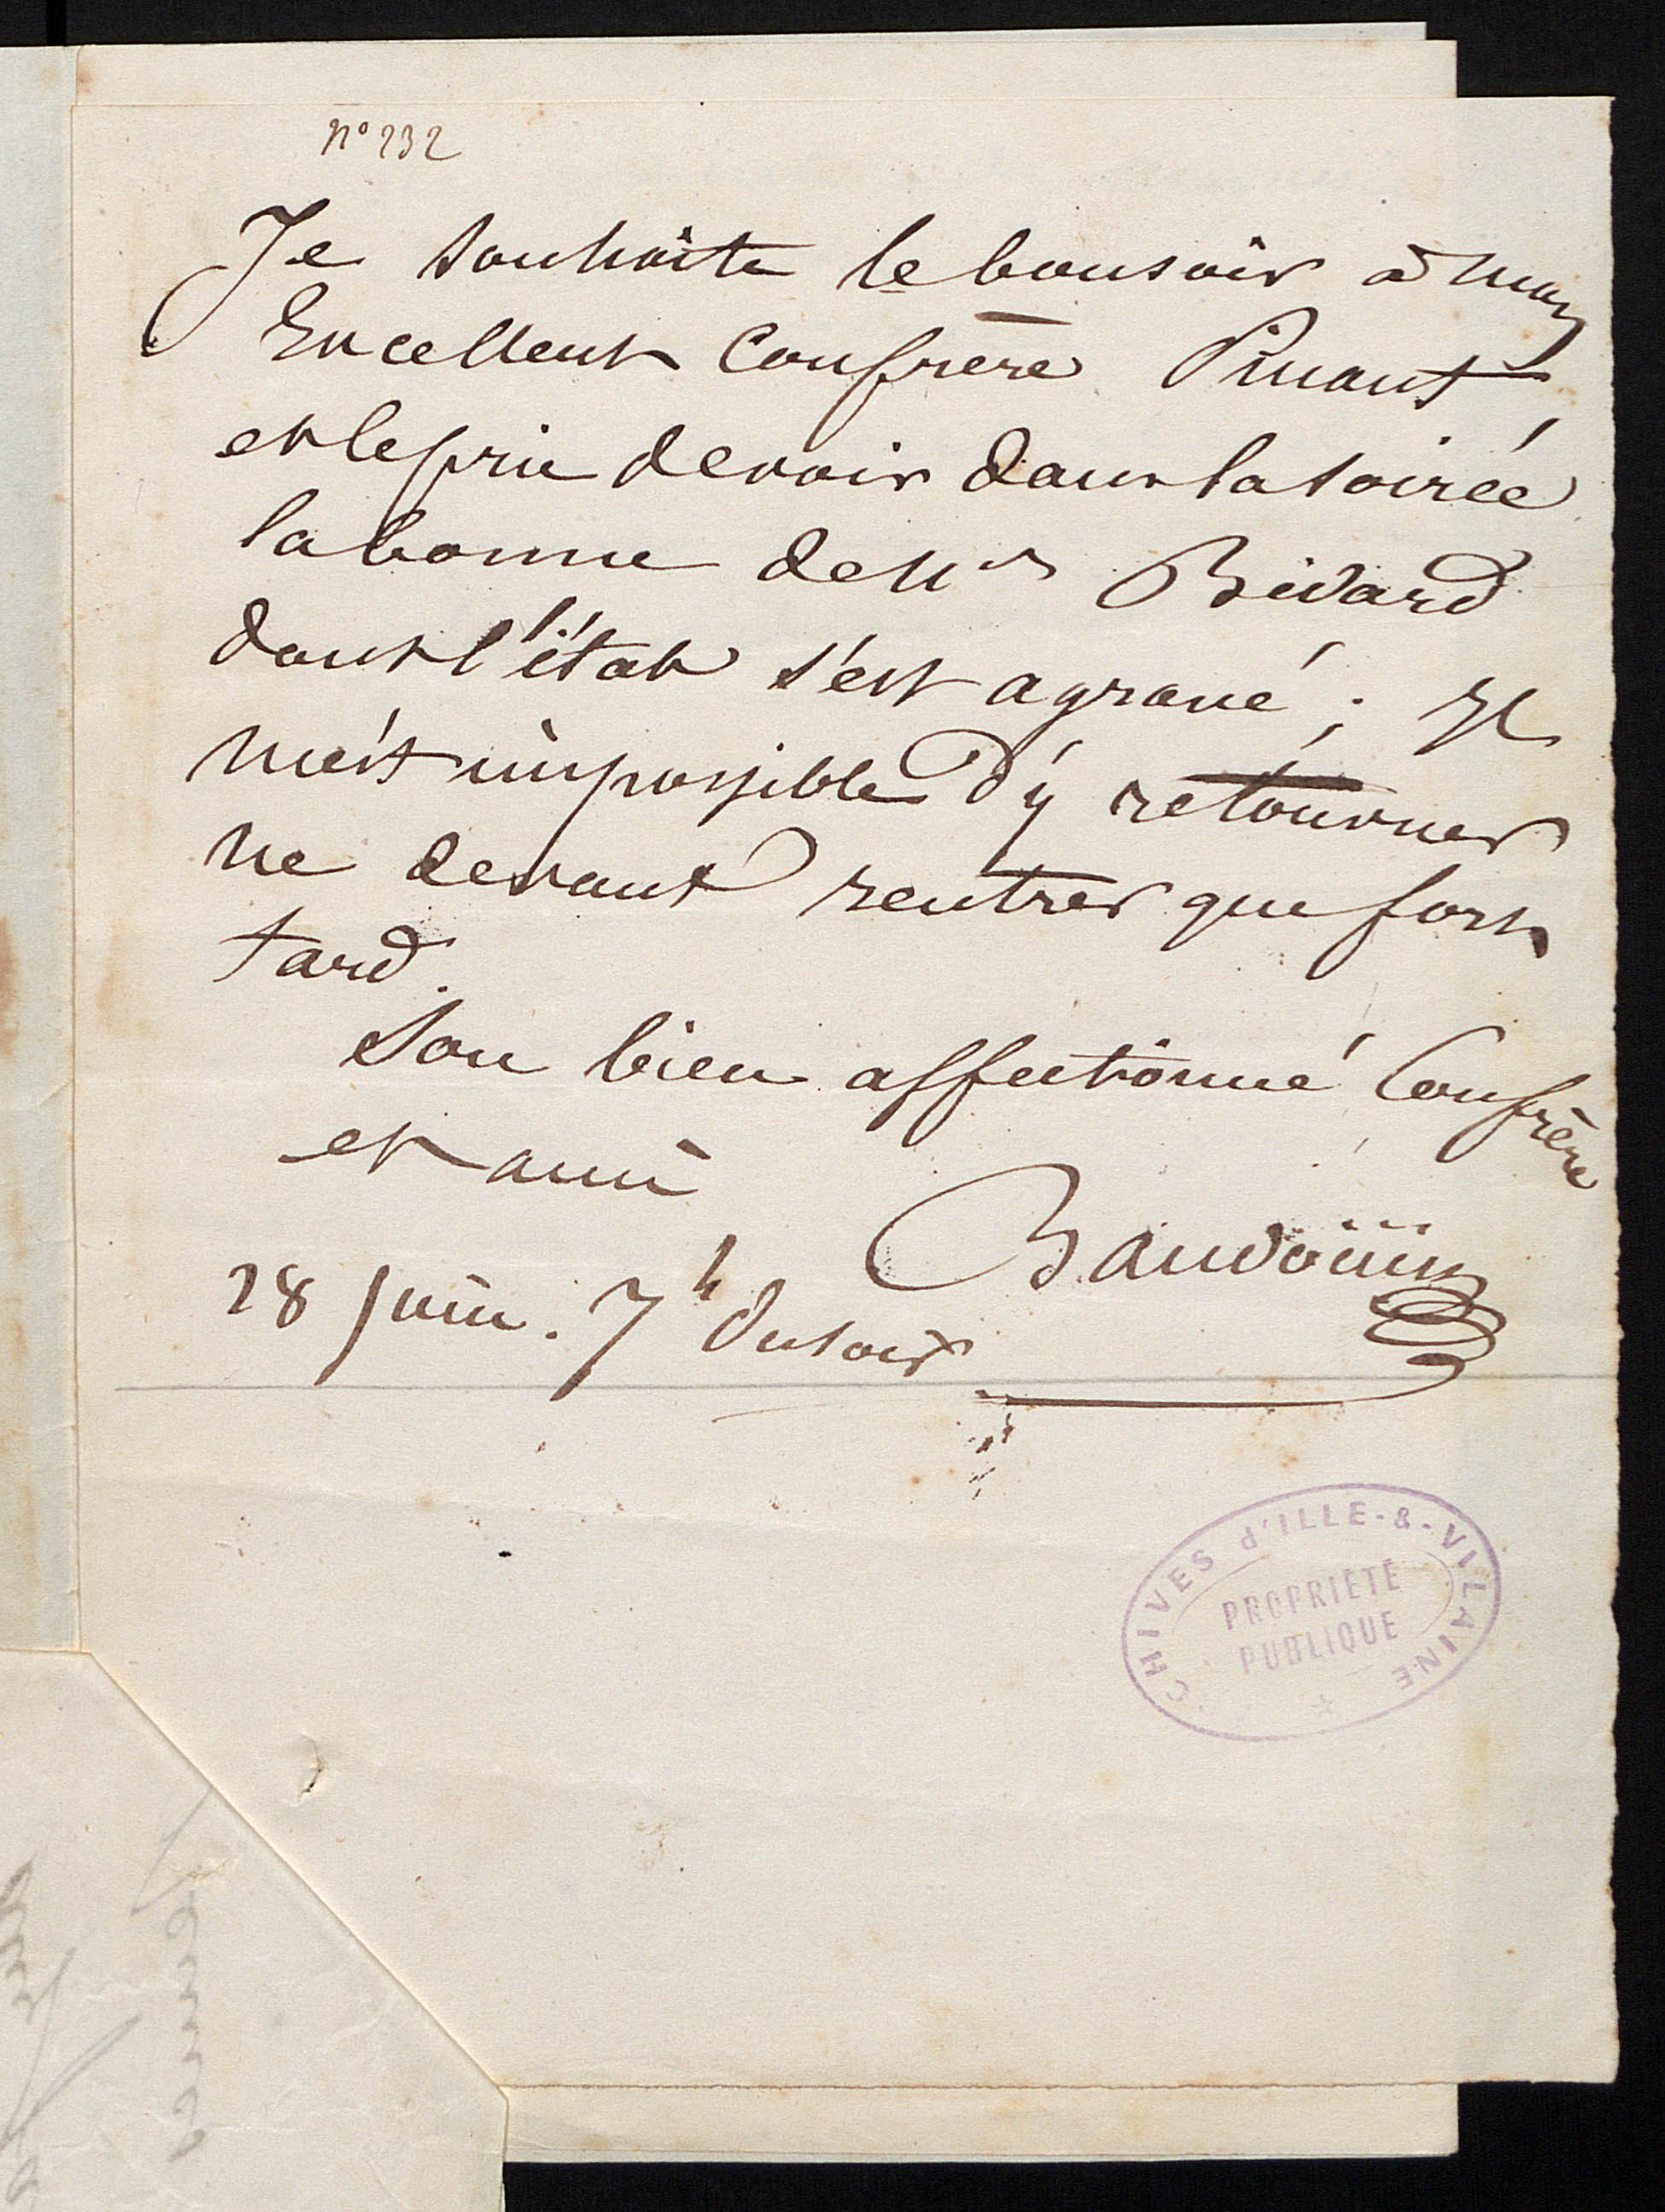 n° 232
Je souhaite le bonsoir à mon
Excellent Confrère Pinault,
et le prie de voir dans la soirée
la bonne de Mr Bidard
dont l'état s'est agravé ; Il
m'est impossible d'y retourner
ne devant rentrer que fort
tard.
Son bien affectionné Confrère
et ami
Baudouin
28 Juin. 7h du soir
CHIVES d'ILLE-&-VILAINE
PROPRIETE
PUBLIQUE